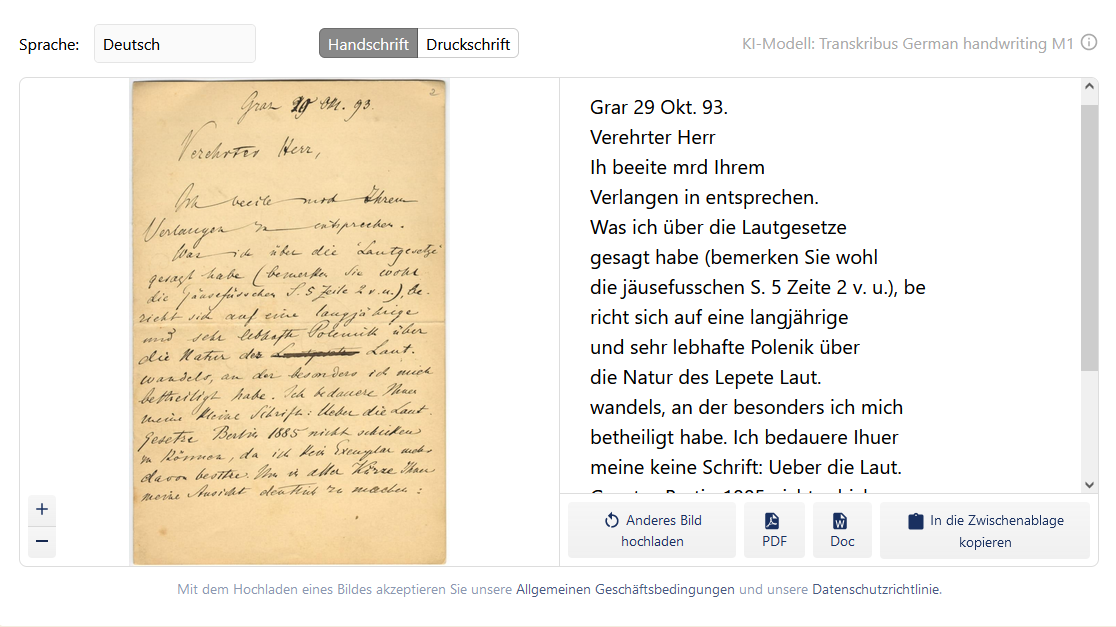 Sprache:
Deutsch
Handschrift
Druckschrift
KI-Modell: Transkribus German handwriting M1
2
Graz 29 Okt. 93.
Verehrter Herr,
Ich beeile mich Ihrem
Verlangen zu entsprechen.
Was ich über die Lautgesetze
gesagt habe (bemerken Sie wohl
die Gänsefüsschen S. 5 Zeile 2 v. u.), be-
zieht sich auf eine langjährige
und sehr lebhafte Polemik über
die Natur des Laut-
wandels, an der besonders ich mich
betheiligt habe. Ich bedauere Ihnen
meine kleine Schrift: Ueber die Laut-
gesetze Berlin 1885 nicht schicken
zu können, da ich kein Exemplar mehr
davon besitze. Um in aller Kürze Ihnen
meine Ansicht deutlich zu machen:
+
−
Grar 29 Okt. 93.
Verehrter Herr
Ih beeite mrd Ihrem
Verlangen in entsprechen.
Was ich über die Lautgesetze
gesagt habe (bemerken Sie wohl
die jäusefusschen S. 5 Zeite 2 v. u.), be
richt sich auf eine langjährige
und sehr lebhafte Polenik über
die Natur des Lepete Laut.
wandels, an der besonders ich mich
betheiligt habe. Ich bedauere Ihuer
meine keine Schrift: Ueber die Laut.
Anderes Bild
hochladen
PDF
Doc
In die Zwischenablage
kopieren
Mit dem Hochladen eines Bildes akzeptieren Sie unsere Allgemeinen Geschäftsbedingungen und unsere Datenschutzrichtlinie.